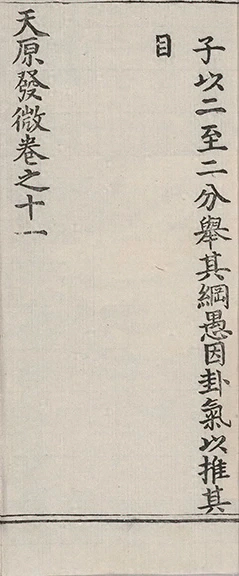 子以二至二分舉其綱愚因卦氣以推其
目
天原發微卷之十一